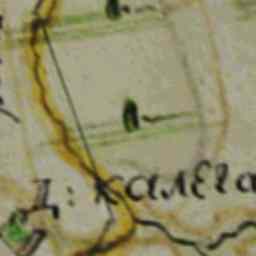 Д: калега